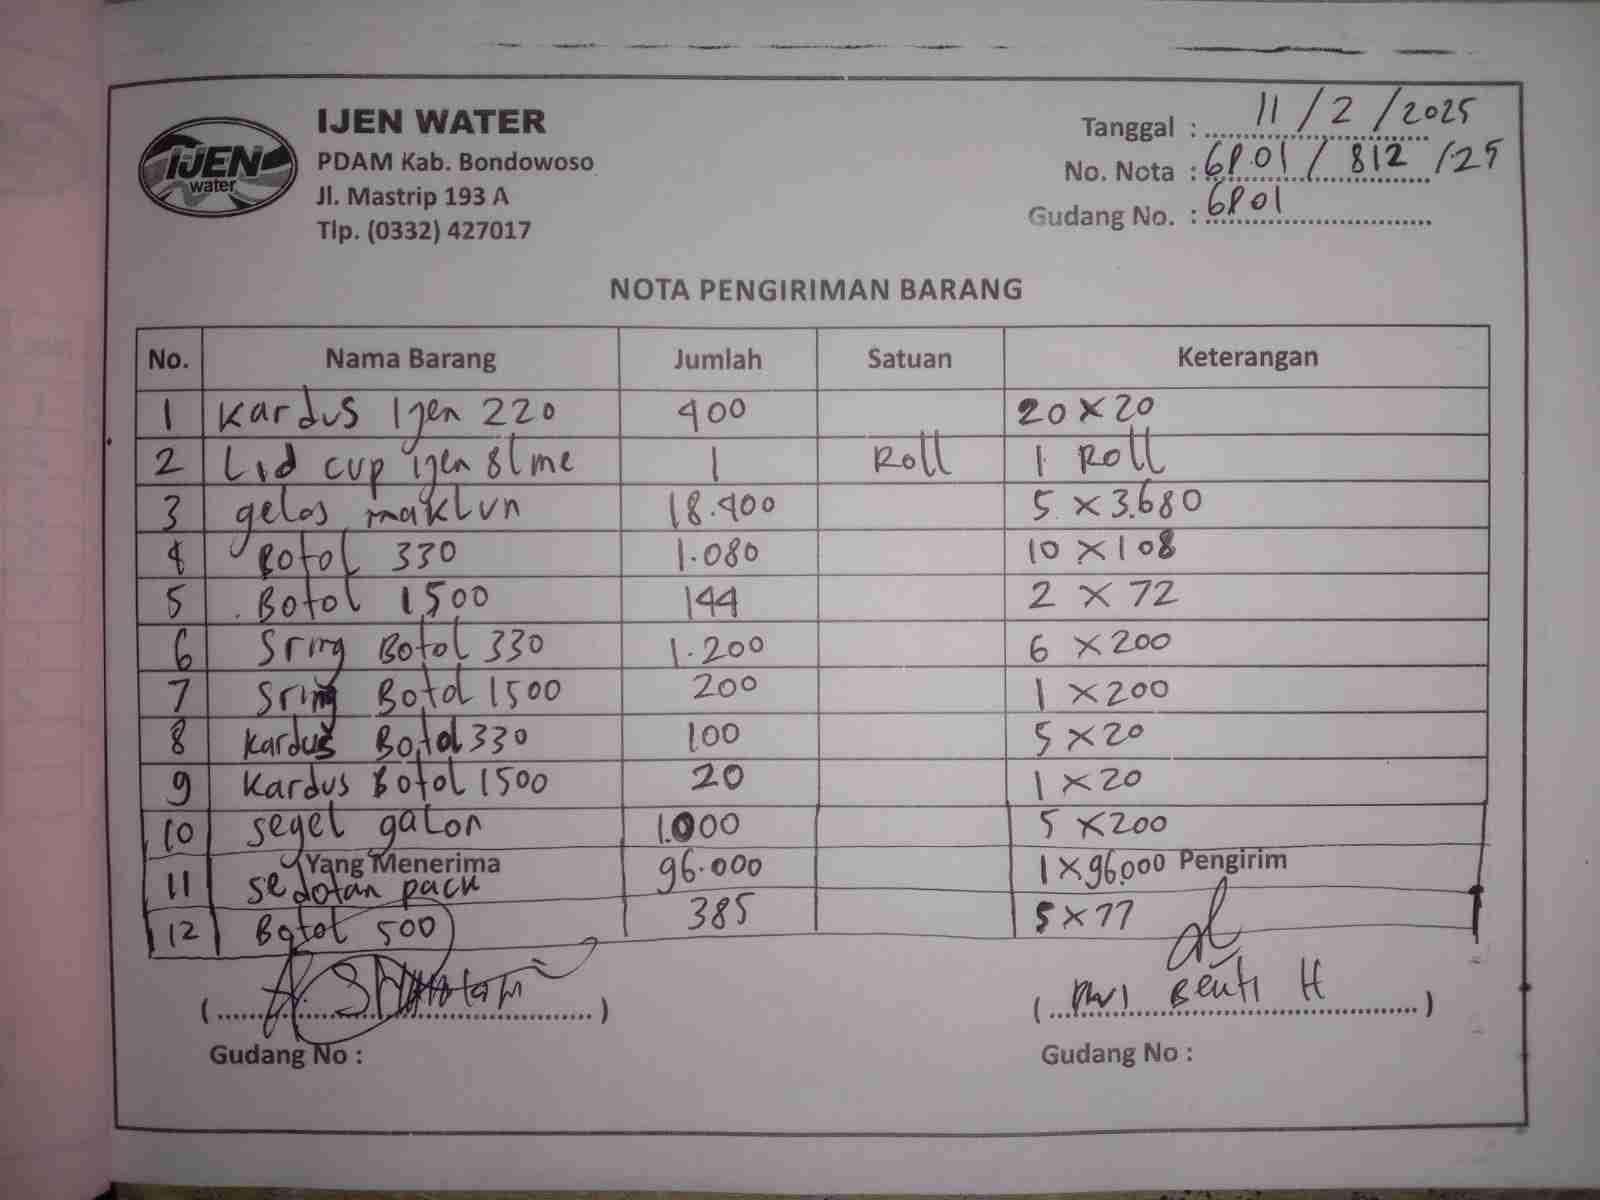 IJEN
water
IJEN WATER
PDAM Kab. Bondowoso
Jl. Mastrip 193 A
Tlp. (0332) 427017
Tanggal : 11 / 2 / 2025
No. Nota : 6P.01 / 812 / 25
Gudang No. : 6P01
NOTA PENGIRIMAN BARANG
No. Nama Barang Jumlah Satuan Keterangan
1 Kardus Ijen 220 400 20 x 20
2 Lid cup ijen slme 1 Roll 1 Roll
3 gelas maklun 18.400 5 x 3.680
4 Botol 330 1.080 10 x 108
5 Botol 1500 144 2 x 72
6 Sring Botol 330 1.200 6 x 200
7 Sring Botol 1500 200 1 x 200
8 Kardus Botol 330 100 5 x 20
9 Kardus Botol 1500 20 1 x 20
10 segel galon 1.000 5 x 200
Yang Menerima Pengirim
11 sedotan pack 96.000 1 x 96.000
12 Botol 500 385 5 x 77
(....................) (.... H ....)
Gudang No : Gudang No :